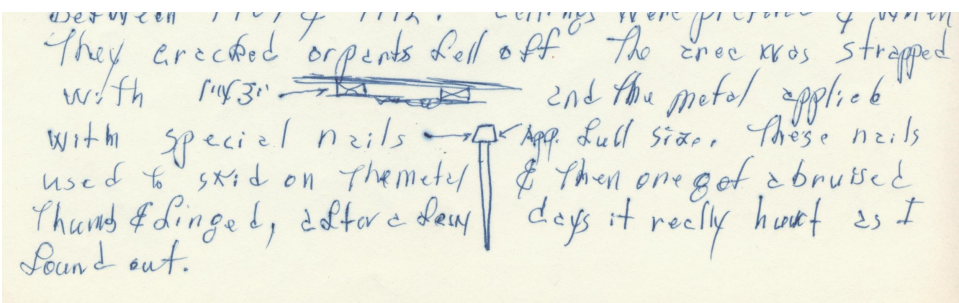 They cracked or parts fell off. The area was strapped
with 1"x3" and the metal applied
with special nails App. full size. These nails
used to skid on the metal & then one got a bruised
thumb & finged, after a few days it really hurt as I
found out.